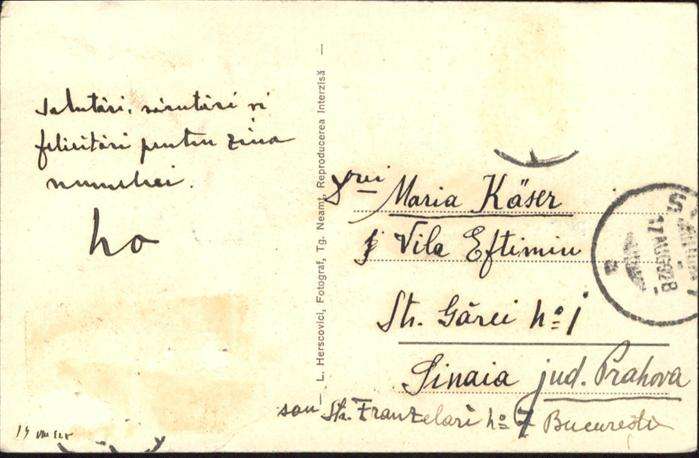 Salutări, sărutări și
felicitări pentru ziua
numelui.
L. Herscovici, Fotograf, Tg. Neamț. Reproducerea Interzisă
Maria Käser
Vila Eftimiu
Str. Gărei No 1
Sinaia jud. Prahova
sau Str. Franzelari No 7 București